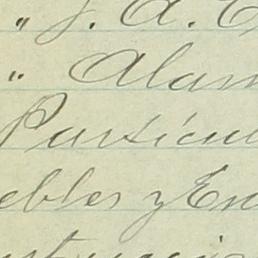 " J. A. C
" Alam
Particu
ebles y En